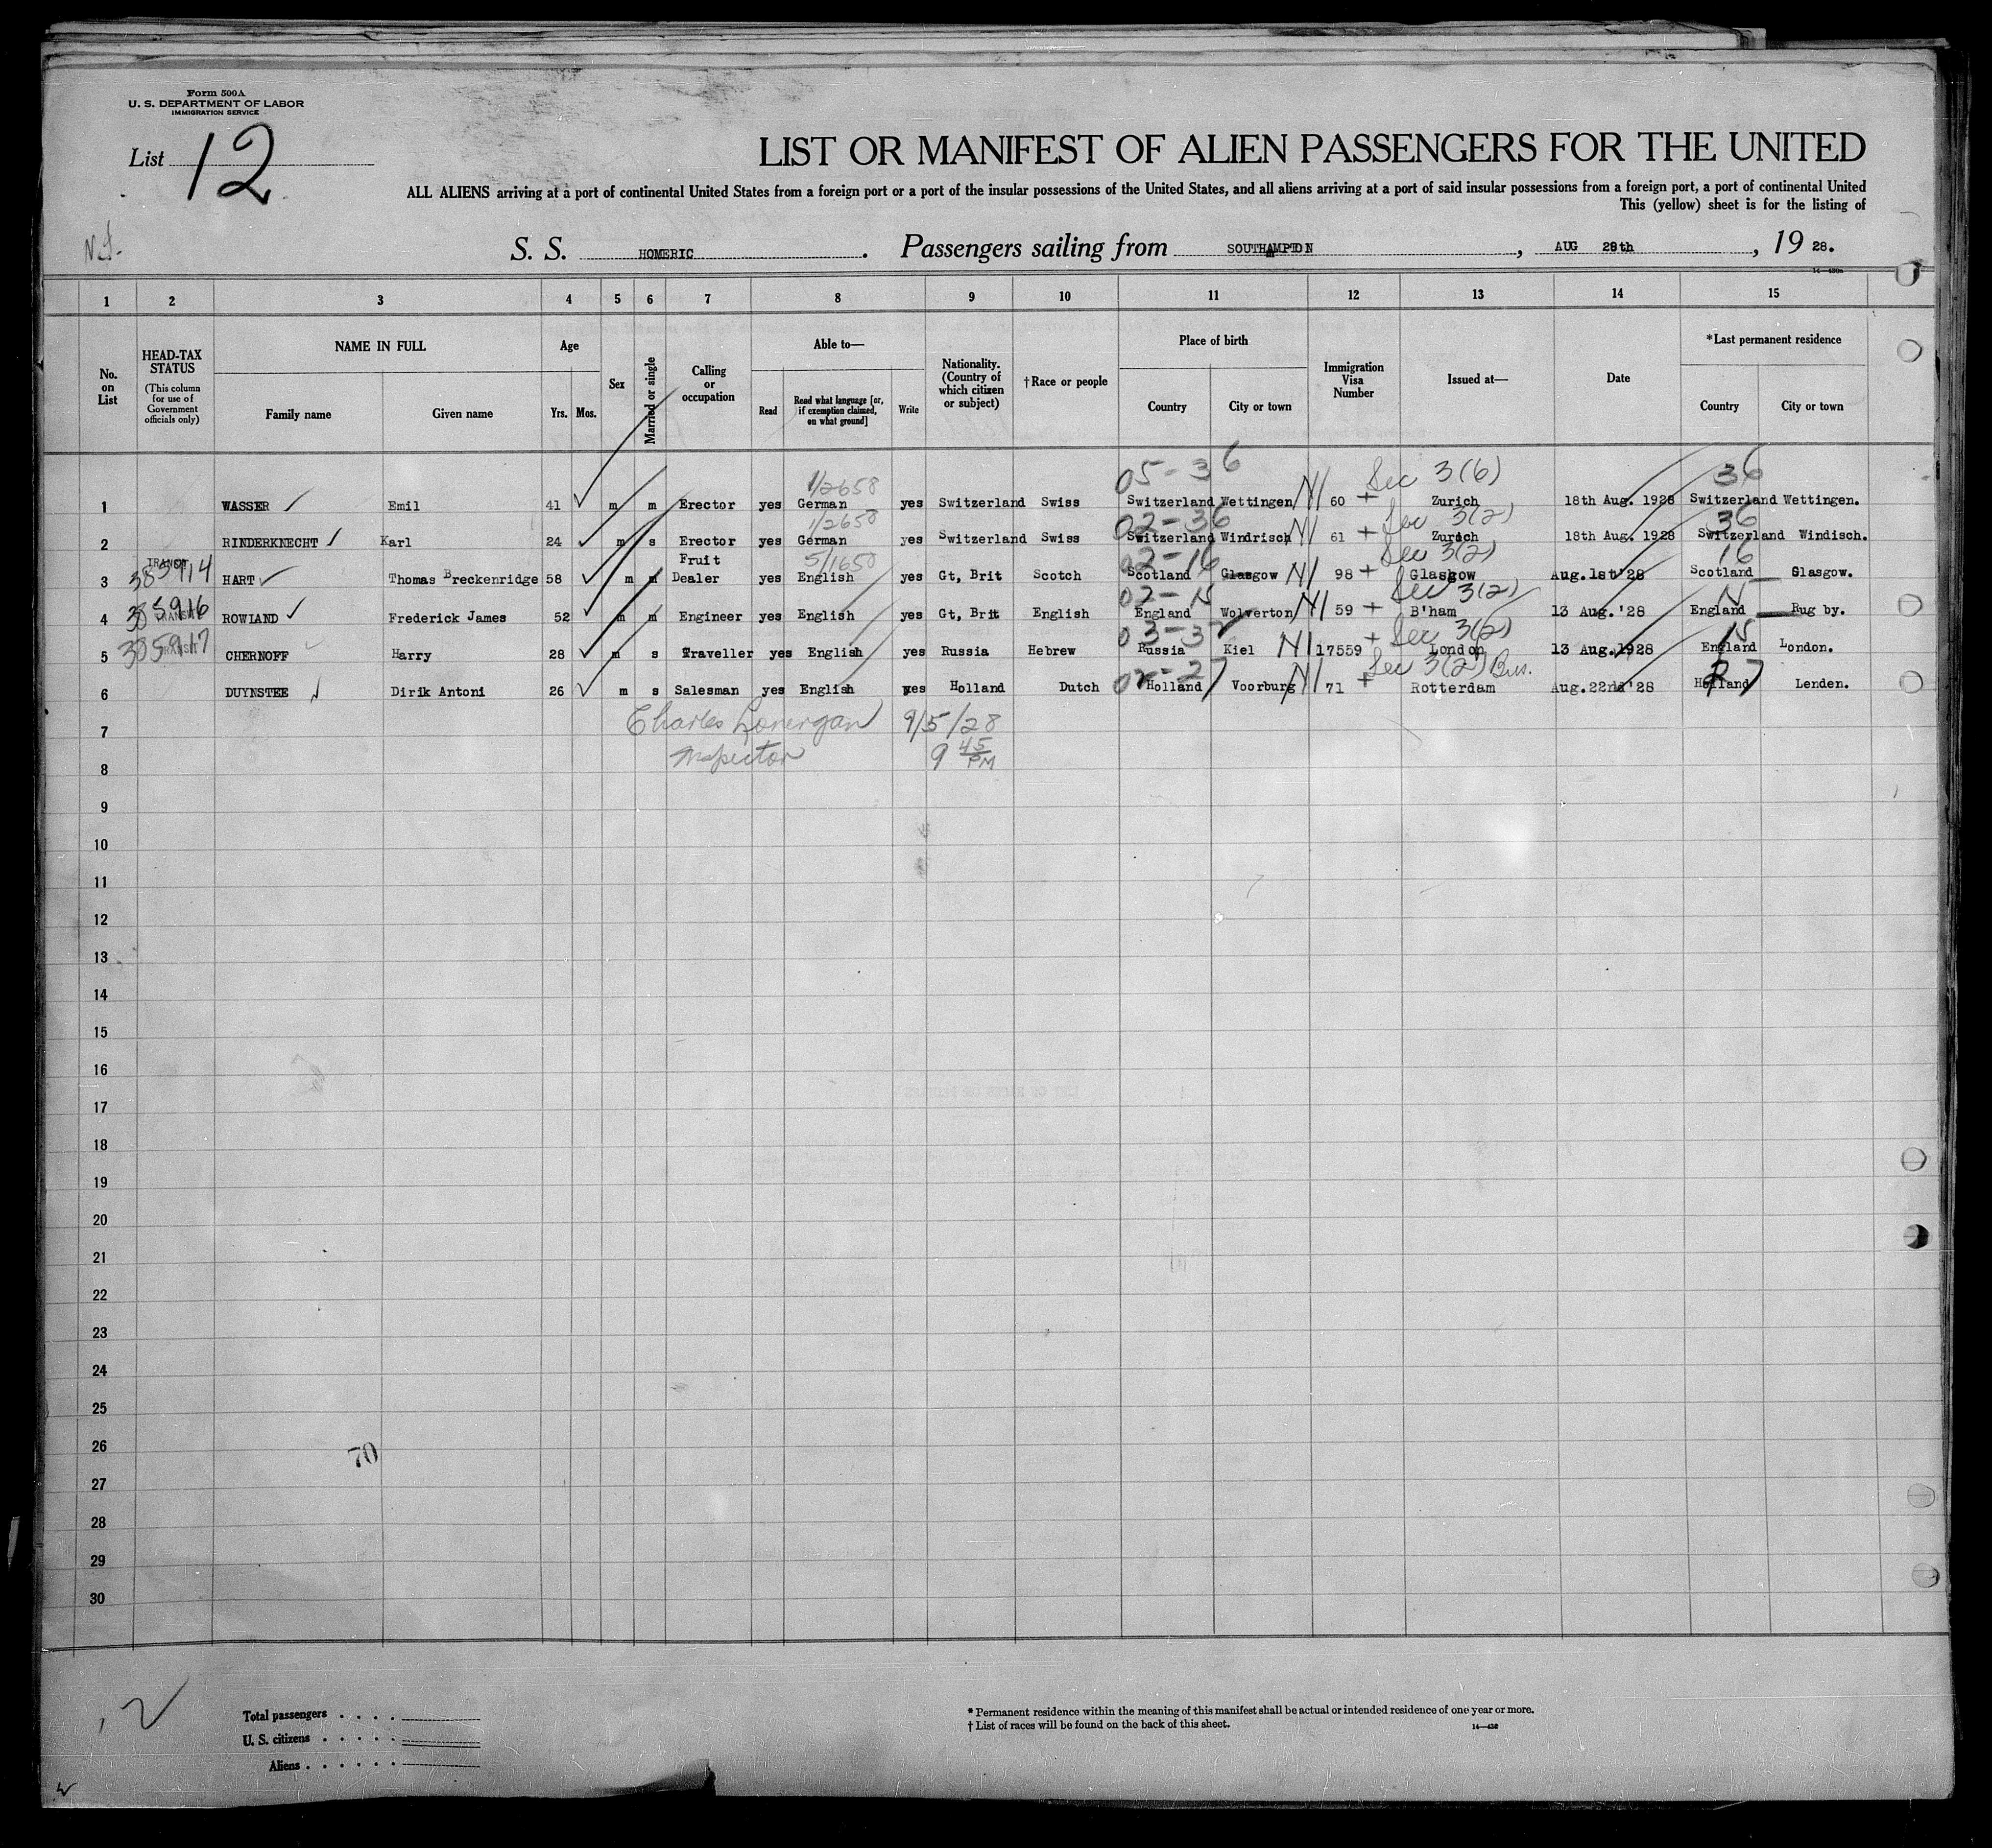 Form 500A
U. S. DEPARTMENT OF LABOR
IMMIGRATION SERVICE
List 12
LIST OR MANIFEST OF ALIEN PASSENGERS FOR THE UNITED
ALL ALIENS arriving at a port of continental United States from a foreign port or a port of the insular possessions of the United States, and all aliens arriving at a port of said insular possessions from a foreign port, a port of continental United
This (yellow) sheet is for the listing of
S. S. HOMERIC. Passengers sailing from SOUTHAMPTON, AUG 29th, 1928.
1 2 3 4 5 6 7 8 9 10 11 12 13 14 15
No. on List
HEAD-TAX STATUS (This column for use of Government officials only)
NAME IN FULL
Family name
Given name
Age
Yrs. Mos.
Sex
Married or single
Calling or occupation
Able to—
Read
Read what language [or, if exemption claimed, on what ground]
Write
Nationality. (Country of which citizen or subject)
†Race or people
Place of birth
Country
City or town
Immigration Visa Number
Issued at—
Date
*Last permanent residence
Country
City or town
05-36 Sec 3(6) 36
1/2658
1 WASSER Emil 41 m m Erector yes German yes Switzerland Swiss Switzerland Wettingen N1 60 + Zurich 18th Aug. 1928 Switzerland Wettingen.
1/2658 02-36 Sec 3(2) 36
2 RINDERKNECHT Karl 24 m s Erector yes German yes Switzerland Swiss Switzerland Windrisch N1 61 + Zurich 18th Aug. 1928 Switzerland Windisch.
TRANSIT Fruit 5/1650 02-16 Sec 3(2) 16
3 HART Thomas Breckenridge 58 m m Dealer yes English yes Gt, Brit Scotch Scotland Glasgow N1 98 + Glasgow Aug.1st'28 Scotland Glasgow.
02-15 Sec 3(2)
4 385916 TRANSIT ROWLAND Frederick James 52 m m Engineer yes English yes Gt, Brit English England Wolverton N1 59 + B'ham 13 Aug.'28 England Rug by.
03-32 Sec 3(2) 15
5 385917 TRANSIT CHERNOFF Harry 28 m s Traveller yes English yes Russia Hebrew Russia Kiel N1 17559 + London 13 Aug.1928 England London.
02-27 Sec 3(2) Bus. 27
6 DUYNSTEE Dirik Antoni 26 m s Salesman yes English yes Holland Dutch Holland Voorburg N1 71 + Rotterdam Aug.22nd'28 Holland Lenden.
7 Charles Lonergan 9/5/28
8 Inspector 9 45 PM
9
10
11
12
13
14
15
16
17
18
19
20
21
22
23
24
25
26
70
27
28
29
30
Total passengers
U. S. citizens
Aliens
* Permanent residence within the meaning of this manifest shall be actual or intended residence of one year or more.
† List of races will be found on the back of this sheet.
14—430